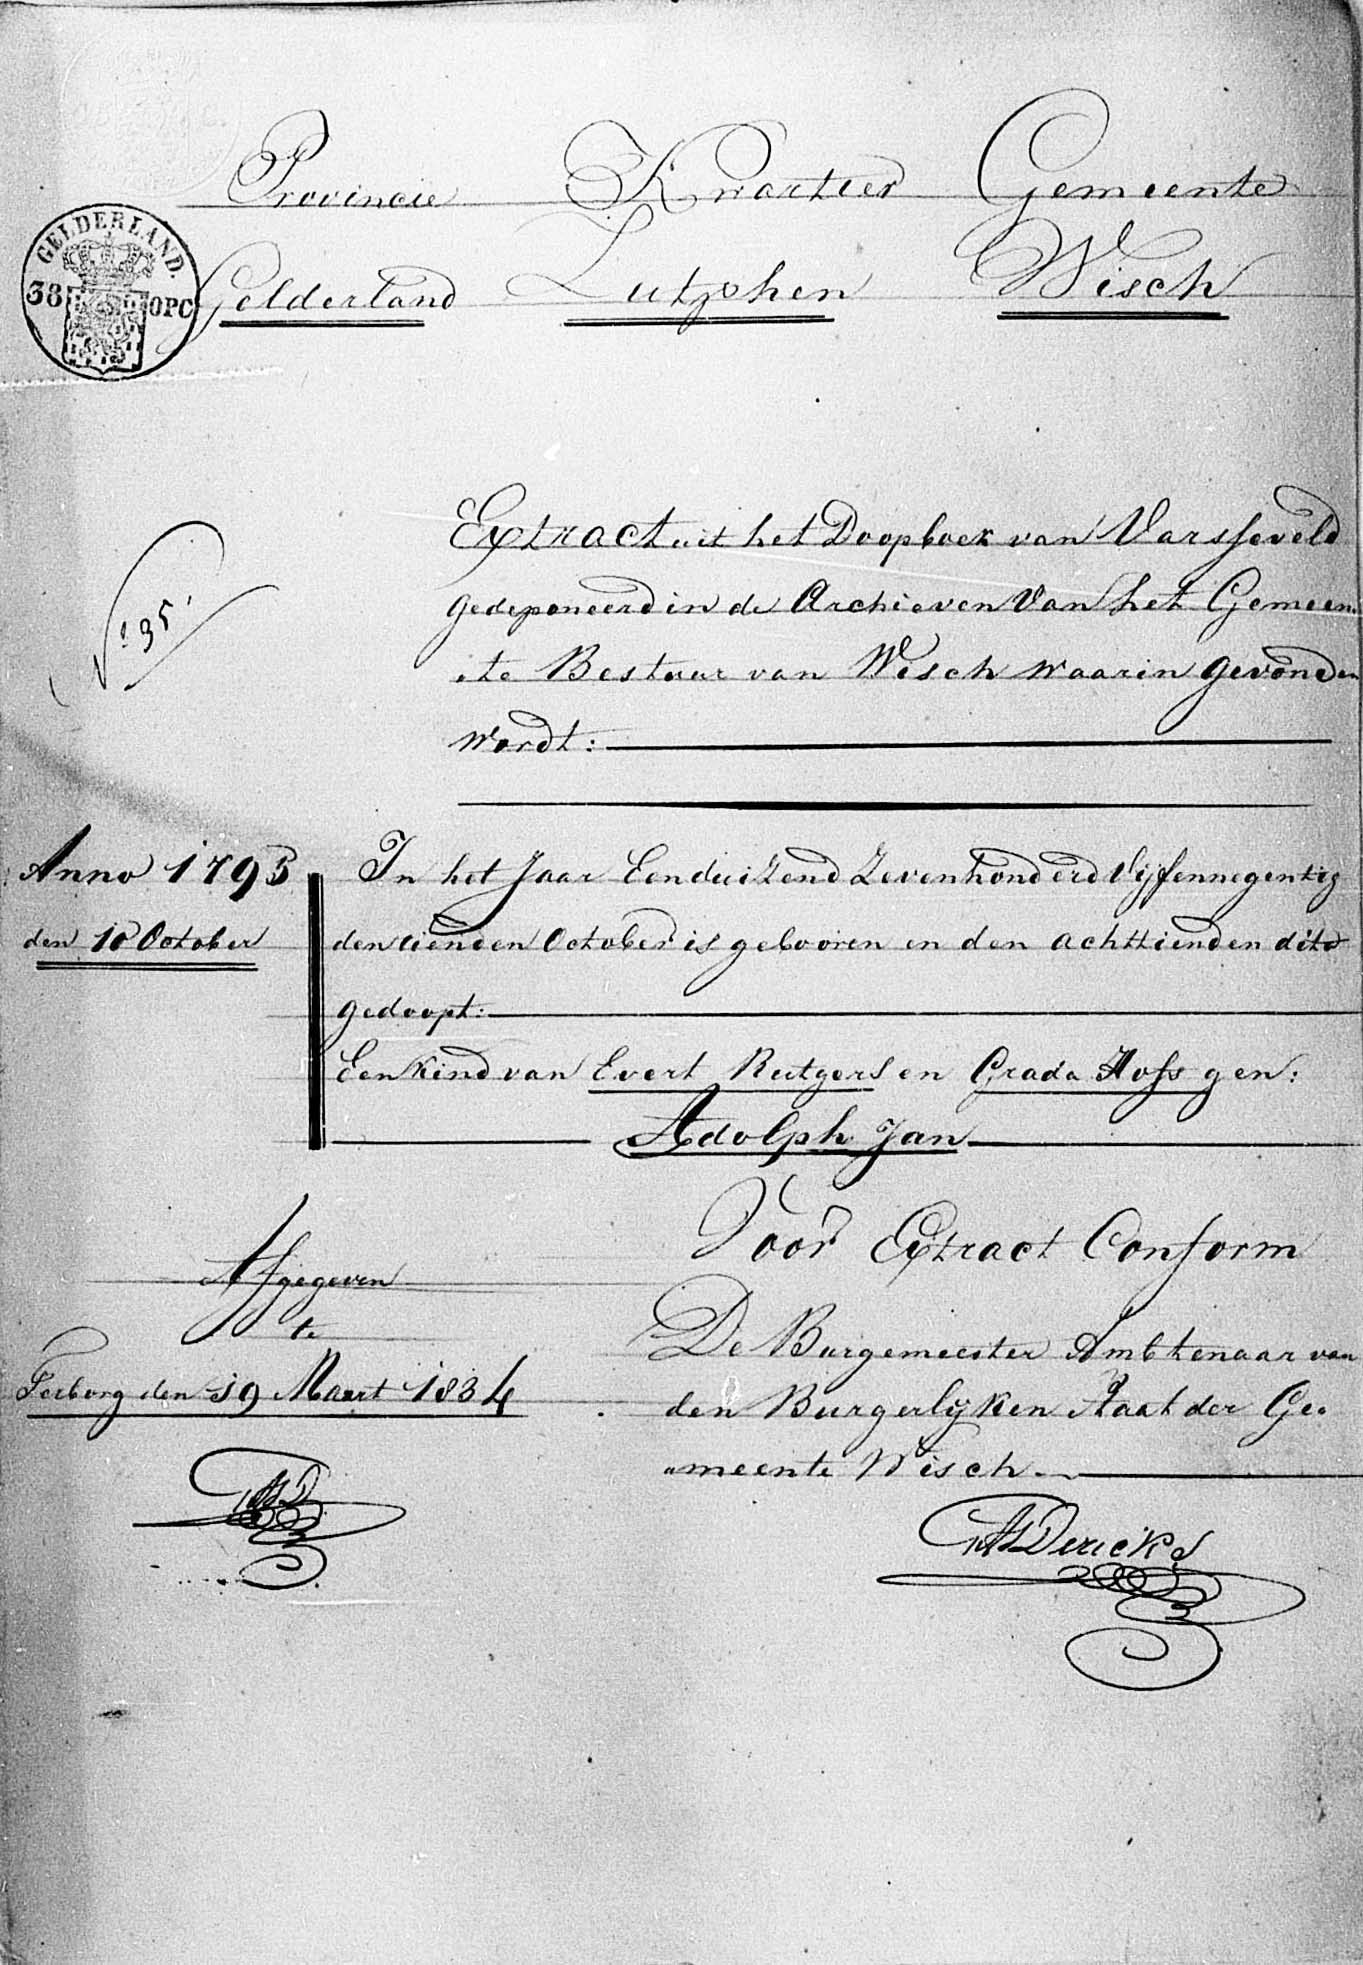 Provincie Kwartier Gemeente
Gelderland Zutphen Wisch
GELDERLAND.
38 OPC
Extract uit het Doopboek van Varsseveld
gedeponeerd in de Archieven van het Gemeen
te Bestuur van Wisch waarin gevonden
wordt:
No 35.
Anno 1795
den 10 October
In het Jaar Eenduizend Zevenhonderd Vijfennegentig
den tienden October is gebooren en den achttienden dito
gedoopt:
Een kind van Evert Rutgers en Grada Hofs gen:
Adolph Jan
Voor Extract Conform
De Burgemeester Ambtenaar van
den Burgerlyken Staat der Ge-
meente Wisch
Dericks
Afgegeven
te
Terborg den 19 Maart 1834